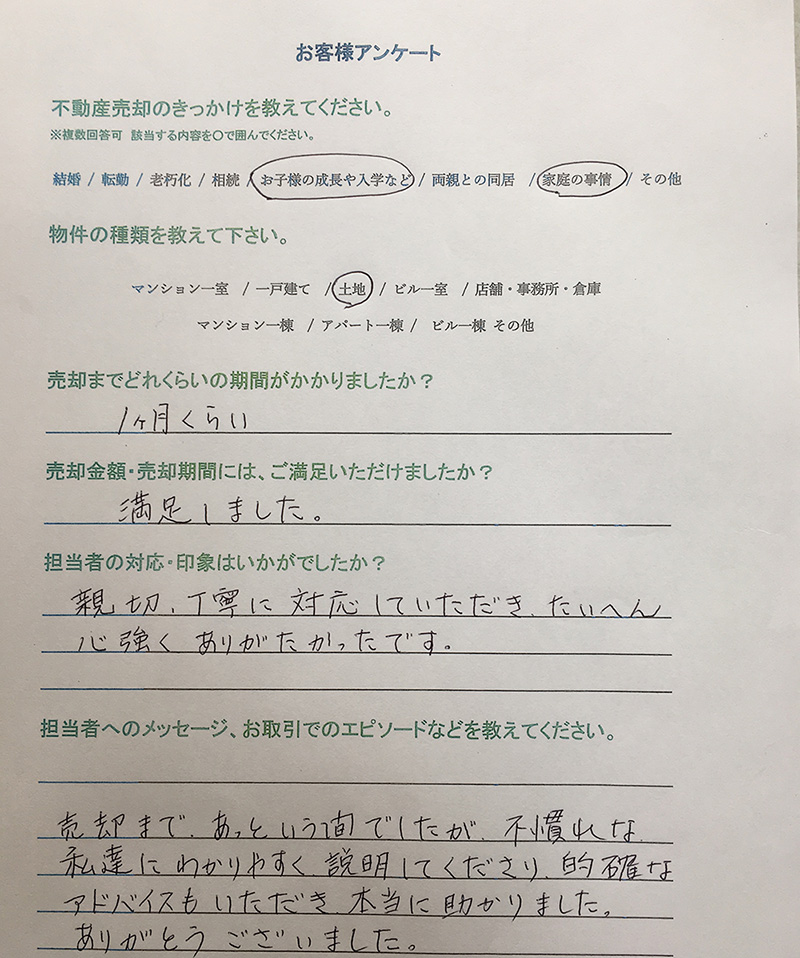 お客様アンケート
不動産売却のきっかけを教えてください。
※複数回答可 該当する内容を〇で囲んでください。
結婚 / 転勤 / 老朽化 / 相続 / お子様の成長や入学など / 両親との同居 / 家庭の事情 / その他
物件の種類を教えて下さい。
マンション一室 / 一戸建て / 土地 / ビル一室 / 店舗・事務所・倉庫
マンション一棟 / アパート一棟 / ビル一棟 その他
売却までどれくらいの期間がかかりましたか？
1ヶ月くらい
売却金額・売却期間には、ご満足いただけましたか？
満足しました。
担当者の対応・印象はいかがでしたか？
親切、丁寧に対応していただき、たいへん
心強くありがたかったです。
担当者へのメッセージ、お取引でのエピソードなどを教えてください。
売却まで、あっという間でしたが、不慣れな
私達にわかりやすく説明してくださり、的確な
アドバイスもいただき本当に助かりました。
ありがとうございました。